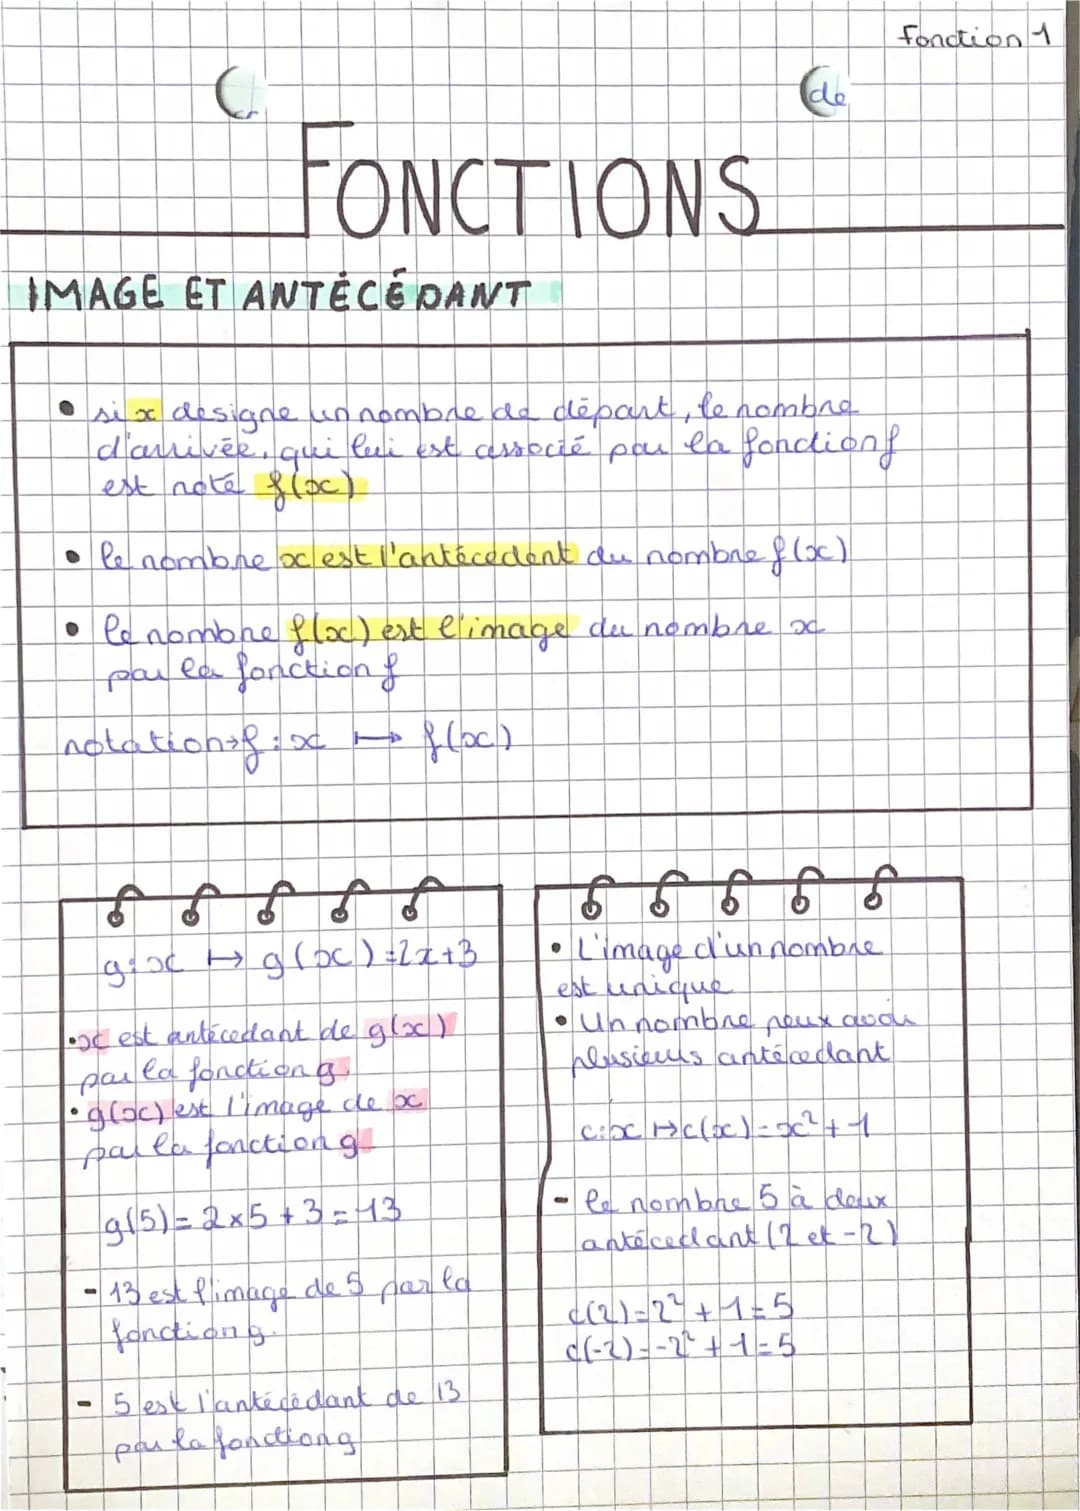 fonction 1
de
FONCTIONS
IMAGE ET ANTÉCÉDANT
• si x designe un nombre de départ, le nombre
d'arrivée, qui lui est associé par la fonction f
est noté f(x)
• le nombre x est l'antécédent du nombre f(x)
• le nombre f(x) est l'image du nombre x
par la fonction f
notation → f : x ↦ f(x)
g : x ↦ g(x) = 2x+3
• x est antécedant de g(x)
par la fonction g.
• g(x) est l'image de x
par la fonction g
g(5) = 2x5 + 3 = 13
- 13 est l'image de 5 par la
fonction g.
- 5 est l'antécédant de 13
par la fonction g
• L'image d'un nombre
est unique
• Un nombre peux avoir
plusieurs antécedant
c : x ↦ c(x) = x² + 1
- le nombre 5 à deux
antécedant (2 et -2)
c(2) = 2² + 1 = 5
c(-2) = -2² + 1 = 5